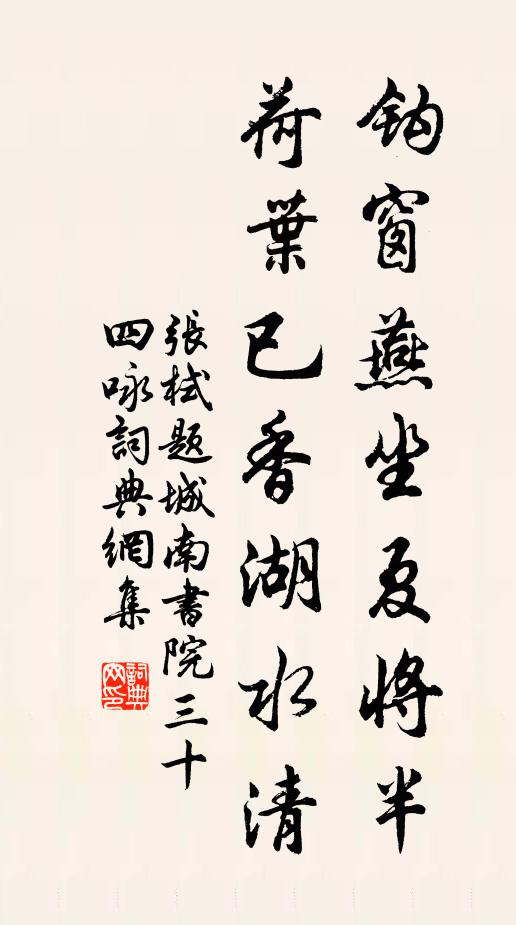 鈎窗燕坐夏將半
荷葉已香湖水清
張栻題城南書院三十
四咏詞典網集
詞典網印